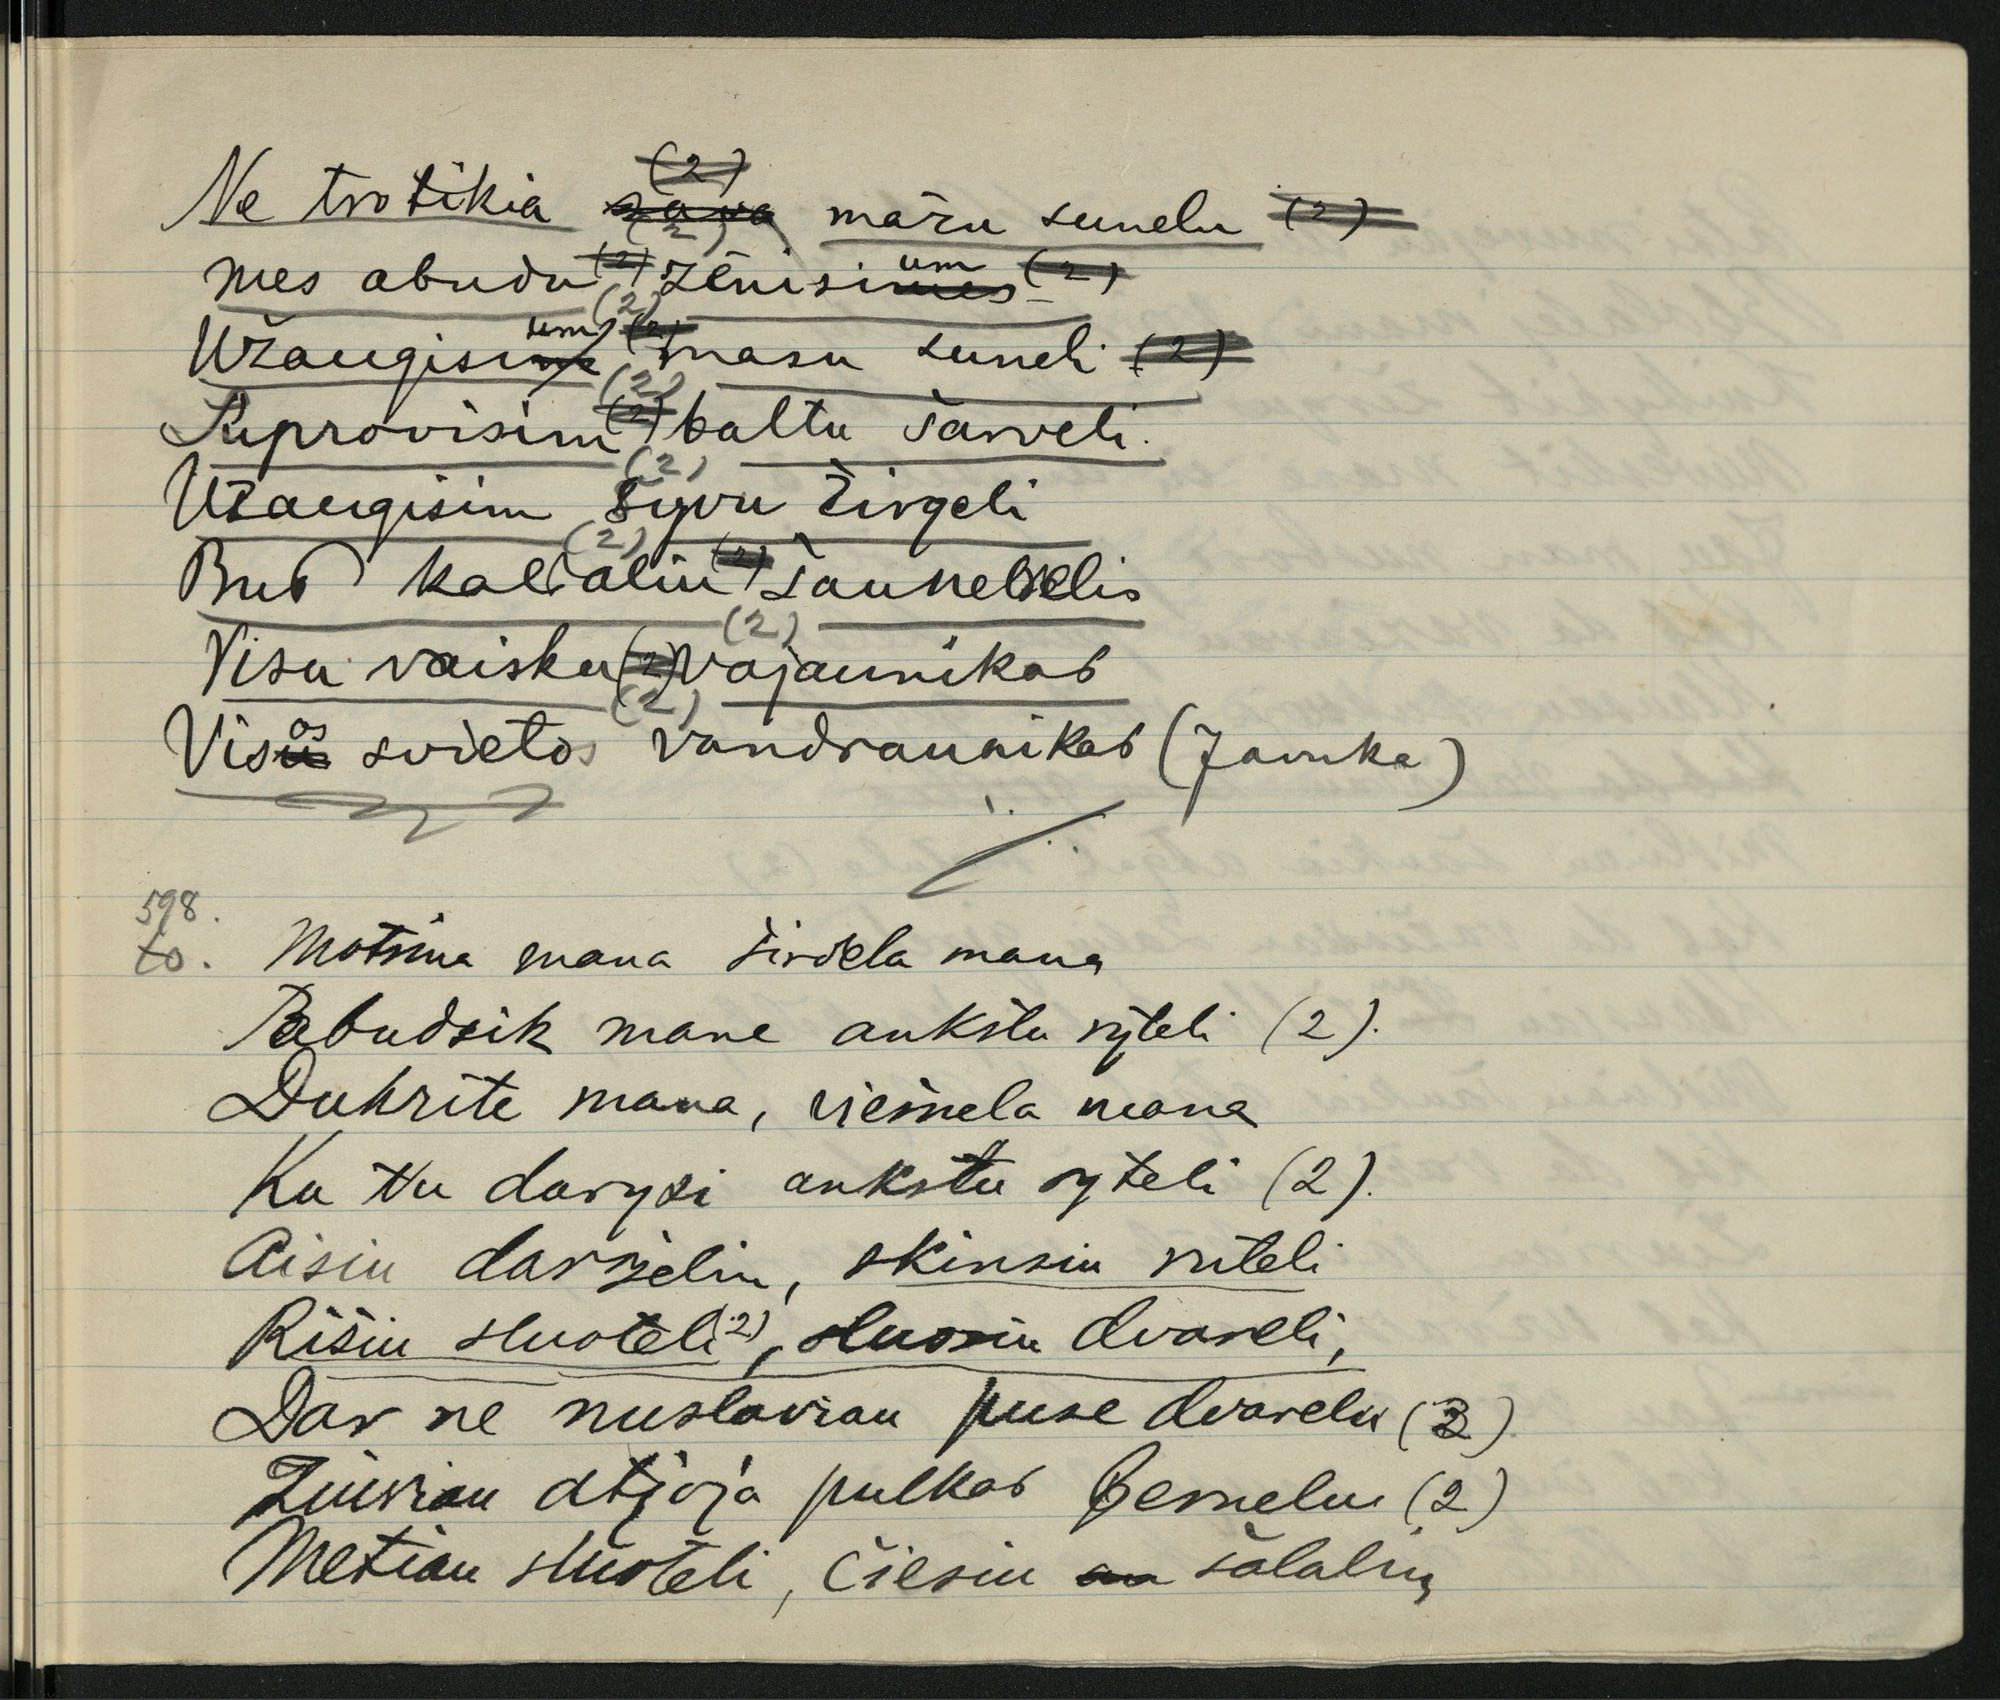 Ne trotikia (2) mažu sunelu
mes abudu (2) ženisium
Užaugisium (2) masu suneli
Suprovisim (2) baltu šarveli.
Užaugisim (2) šyvu žirgeli
Bus kalialiu (2) šaunelselis
Visu vaisku (2) vajaunikas
Visos svietos (2) vandraunikas (Januka)
598.
to. Motina mana širdela mana
Pabudsik mane ankstu ryteli (2).
Dukrite mana, viešnela mana
Ku tu darysi ankstu ryteli (2).
Aisiu darželin, skinsiu ruteli
Rišiu sluoteli (2), sluosiu dvareli,
Dar ne nuslaviau puse dvarelu (2)
Žiuriau atjoja pulkas bernelu (2)
Metiau sluoteli, čiesiu šalalių